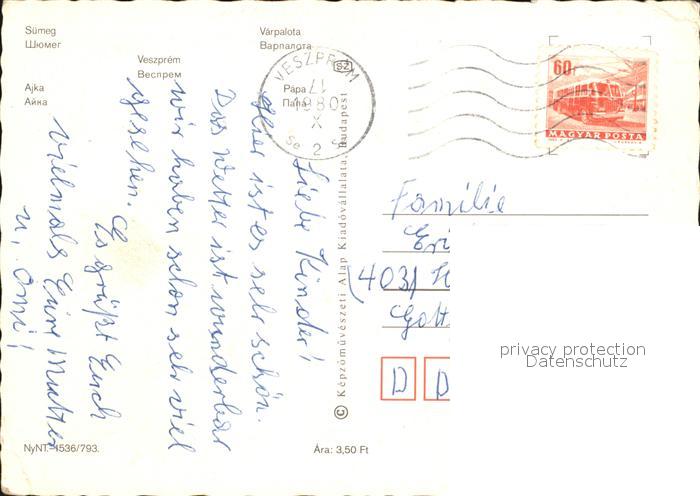 Sümeg
Шюмег
Várpalota
Варпалота
Veszprém
Веспрем
Ajka
Айка
Pápa
Папа
VESZPRÉM
1980
X
2
60f
MAGYAR POSTA
Liebe Kinder!
Hier ist es sehr schön.
Das Wetter ist wunderbar
wir haben schon sehr viel
gesehen.
Es grüßt Euch
vielmals Eure Mutter
u. Omi!
© Képzőművészeti Alap Kiadóvállalata, Budapest
Familie
Eri
(4031
Gott
D D
privacy protection
Datenschutz
NyNT.-1536/793.
Ára: 3,50 Ft